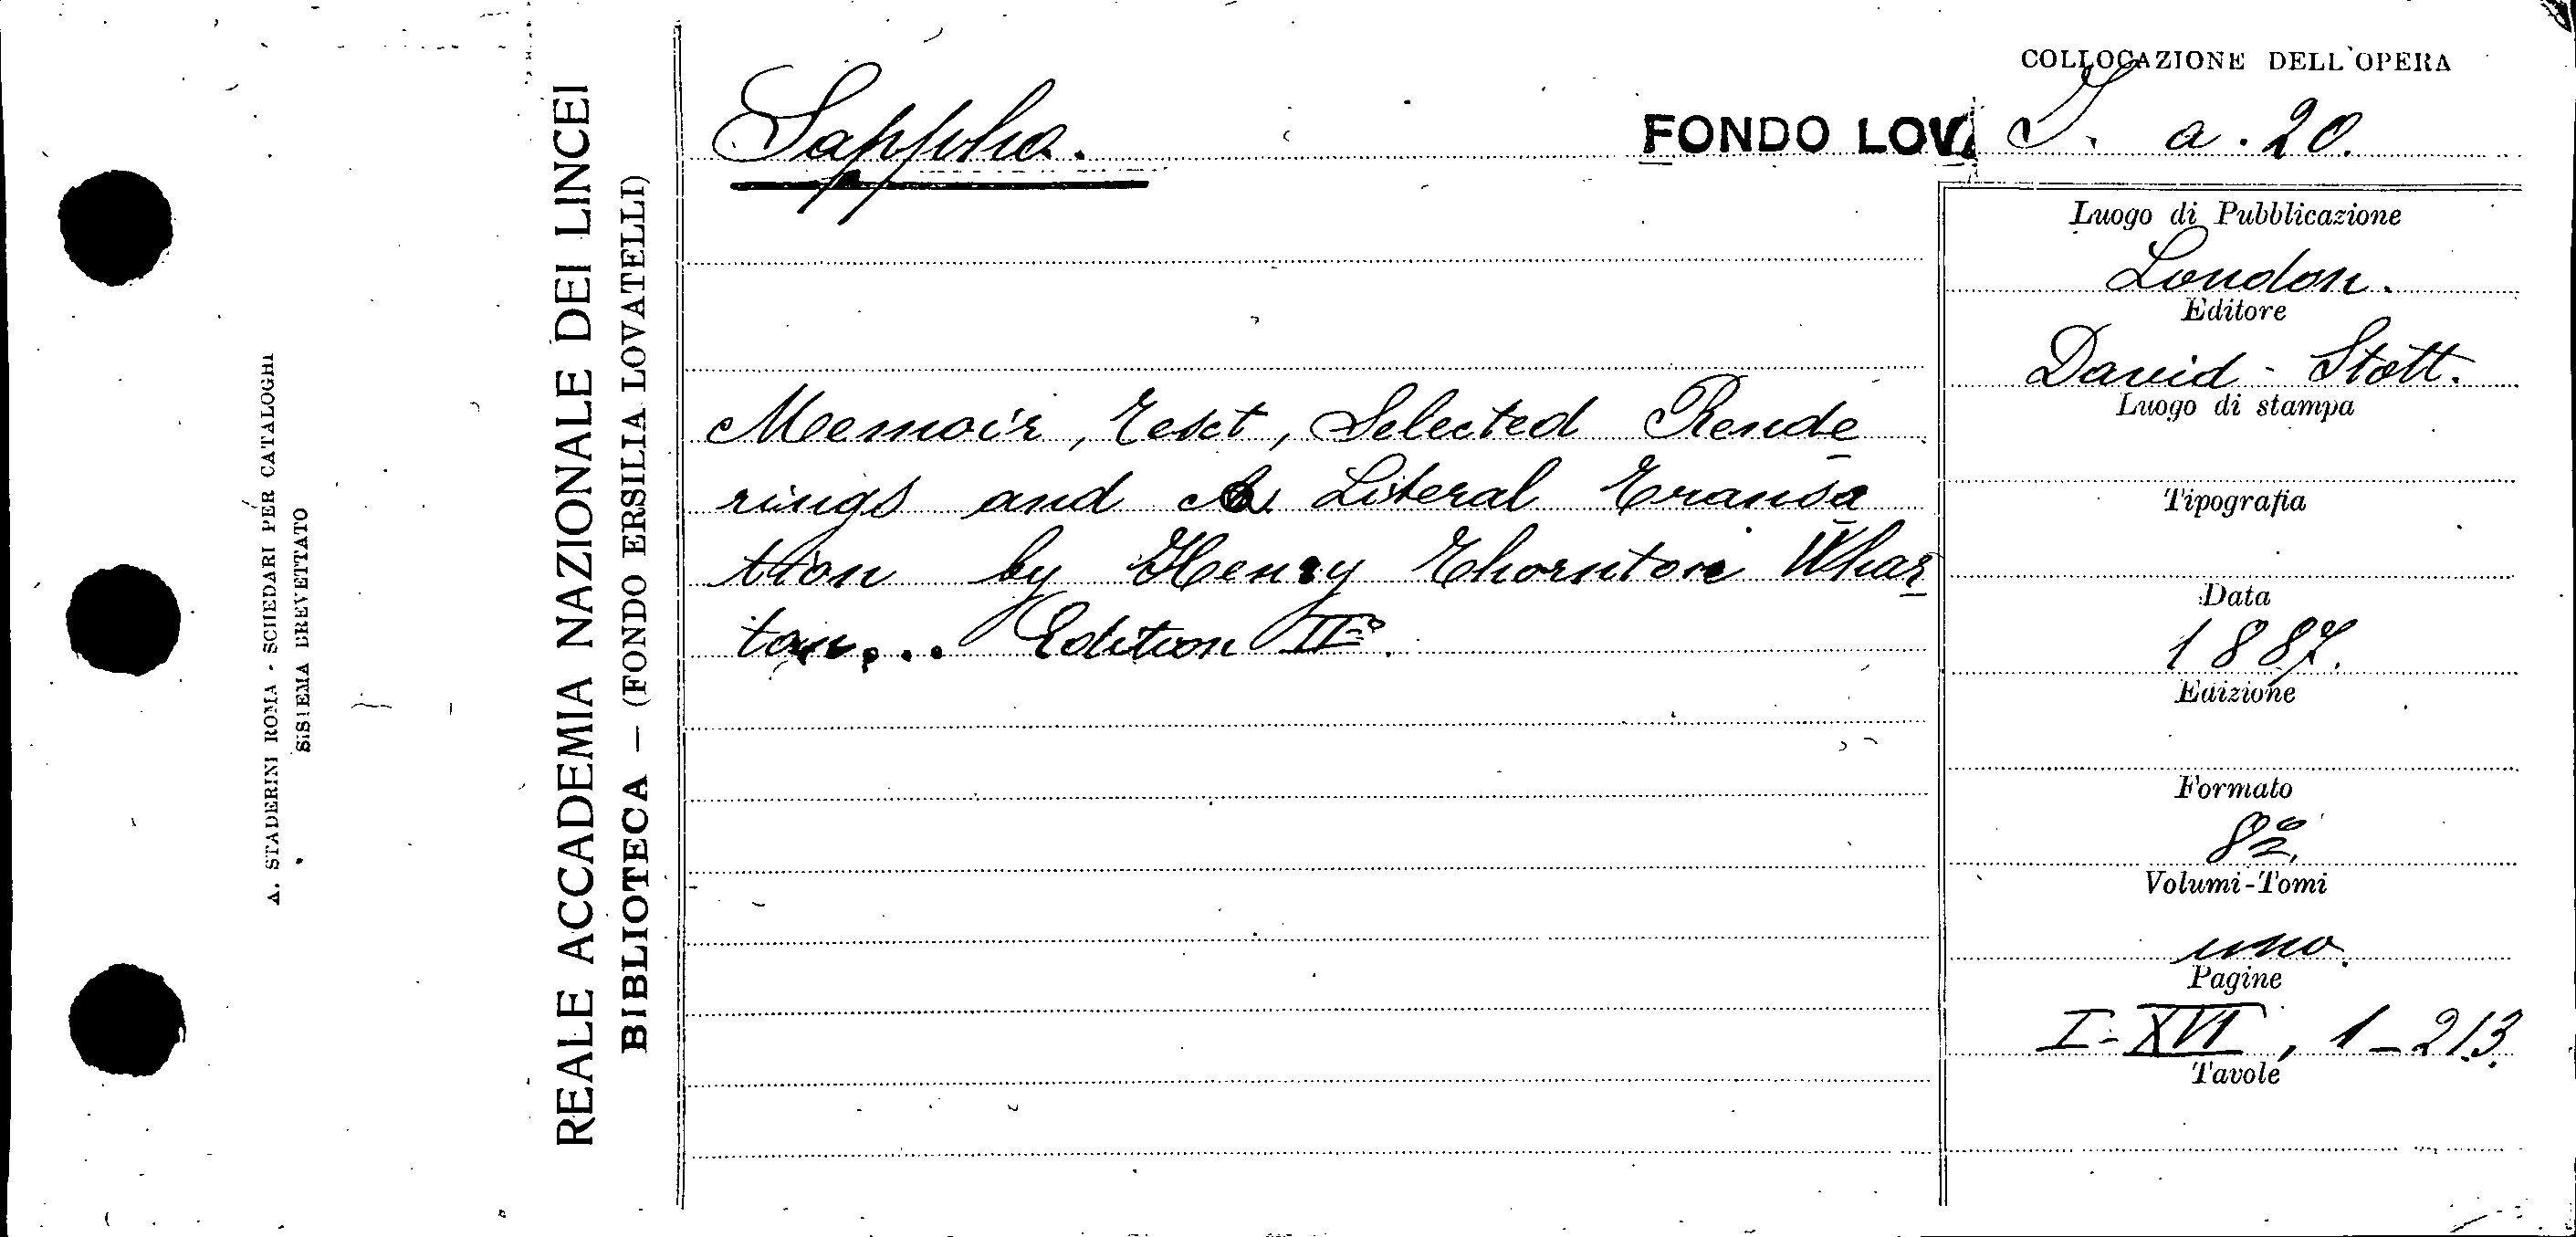 A. STADERINI ROMA - SCHEDARI PER CATALOGHI
SISTEMA BREVETTATO
REALE ACCADEMIA NAZIONALE DEI LINCEI
BIBLIOTECA — (FONDO ERSILIA LOVATELLI)
Sappho.
FONDO LOV
COLLOCAZIONE DELL'OPERA
I. a. 20.
Memoir, Text, Selected Rende
rings and A Literal Transa
tion by Henry Thornton Whar
ton... Edition IIª.
Luogo di Pubblicazione
London.
Editore
David - Stott.
Luogo di stampa
Tipografia
Data
1887.
Edizione
Formato
8º.
Volumi-Tomi
uno.
Pagine
I-XVI, 1-213.
Tavole